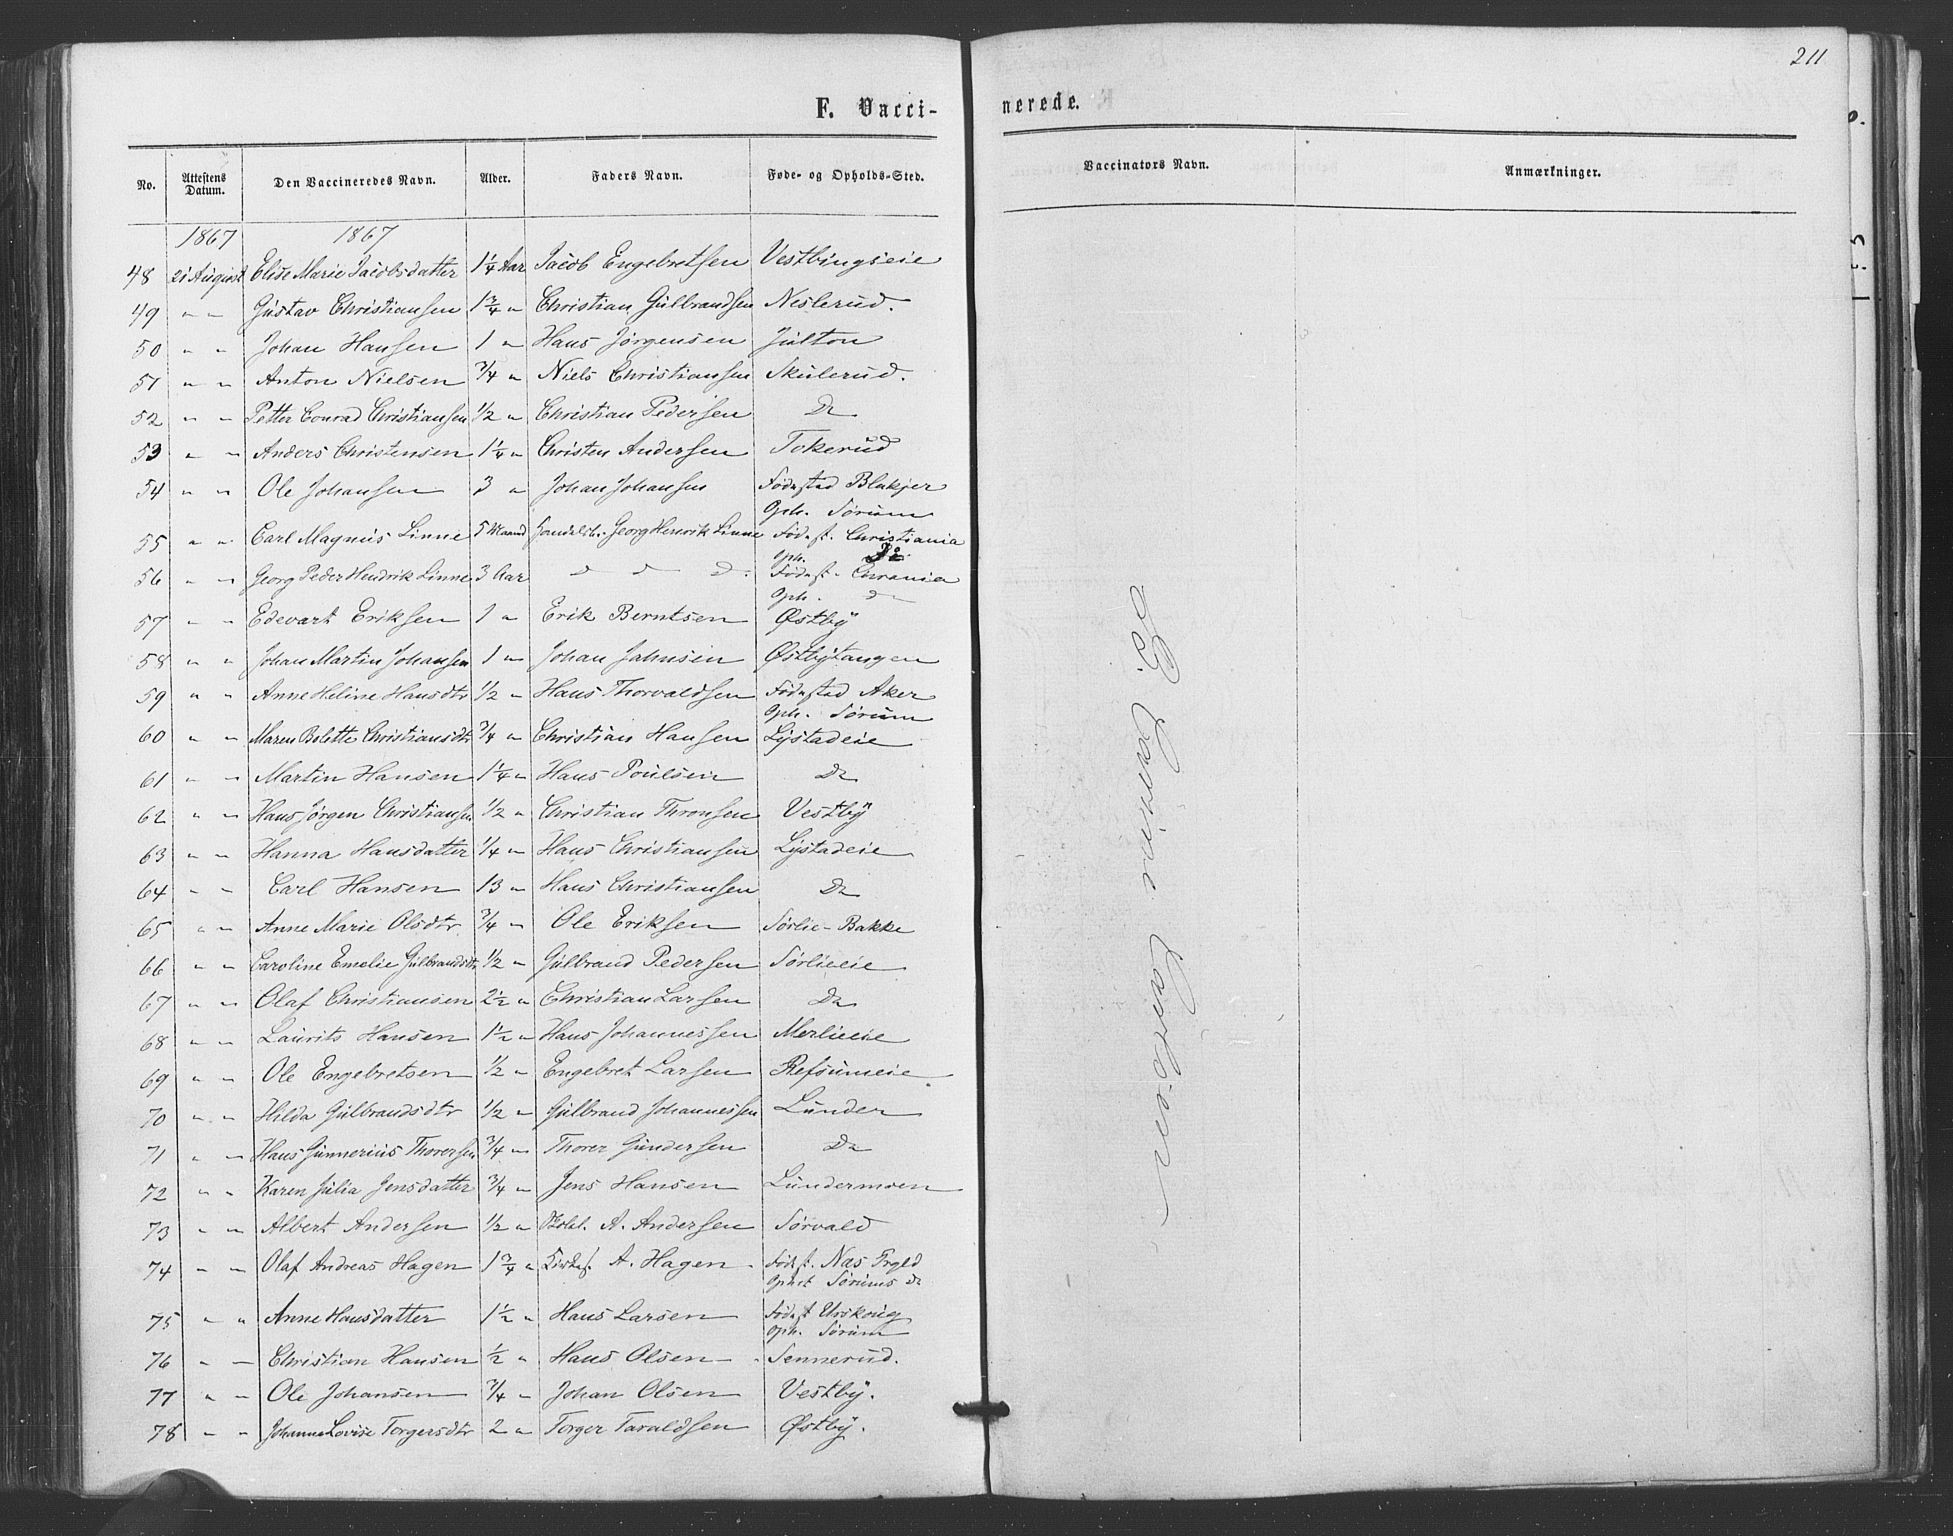 211
F. Vacci-
nerede.
No. Attestens Datum. Den Vaccineredes Navn. Alder. Faders Navn. Føde- og Opholds-Sted. Vaccinators Navn. Anmærkninger.
1867 1867
48 21 August Elise Marie Jacobsdatter 1 1/4 Aar Jacob Engebretsen Vestbyngseie
49 " " Gustav Christiansen 1 3/4 " Christian Gulbrandsen Neslerud.
50 " " Johan Hansen 1 " Hans Jørgensen Jülton
51 " " Anton Nielsen 3/4 " Niels Christiansen Skulerud.
52 " " Petter Conrad Christiansen 1/2 " Christian Pedersen Do
53 " " Anders Christensen 1 1/4 " Christen Andersen Tokerud
54 " " Ole Johansen 3 " Johan Johansen Fødestad Blakjer
Oph. Sørum
55 " " Carl Magnus Linne 5 Maand Handelsb. Georg Henrik Linne Fødest. Christiania
Oph. Do
56 " " Georg Peder Hendrik Linne 3 Aar d d d. Fødest. Chrania
Oph. do
57 " " Edevart Eriksen 1 " Erik Berntsen Østby
58 " " Johan Martin Johansen 1 " Johan Jahnsen Østbytangen
59 " " Anne Heline Hansdtr 1/2 " Hans Thorvaldsen Fødestad Aker
Oph. Sørum
60 " " Maren Bolette Christiansdtr 3/4 " Christian Hansen Lystadeie
61 " " Martin Hansen 1 1/4 " Hans Poulsen Do
62 " " Hans Jørgen Christiansen 1/2 " Christian Thronsen Vestby
63 " " Hanna Hansdatter 1/4 " Hans Christiansen Lystadeie
64 " " Carl Hansen 13 " Hans Christiansen Do
65 " " Anne Marie Olsdtr. 3/4 " Ole Eriksen Sørlie-Bakke
66 " " Caroline Emelie Gulbrandsdtr 1/2 " Gulbrand Pedersen Sørlieeie
67 " " Olaf Christiansen 2 1/2 " Christian Larsen Do
68 " " Laurits Hansen 1 1/2 " Hans Johannessen Merlieeie
69 " " Ole Engebretsen 1/2 " Engebret Larsen Refsumeie
70 " " Hilda Gulbrandsdtr 1/2 " Gulbrand Johannessen Lunder
71 " " Hans Gunnerius Thorersen 3/4 " Thorer Gundersen Do
72 " " Karen Julia Jensdatter 3/4 " Jens Hansen Lundermoen
73 " " Albert Andersen 1/2 " A. Andersen Sørvald
74 " " Olaf Andreas Hagen 1 3/4 " Kirkes. A. Hagen. Fødest. Næs Prgld
Ophst Sørums do
75 " " Anne Hansdatter 1 1/2 " Hans Larsen Fødest Urskoug
Oph. Sørum
76 " " Christian Hansen 1/2 " Hans Olsen Sennerud.
77 " " Ole Johansen 3/4 " Johan Olsen Vestby.
78 " " Johanne Lovise Torgersdtr 2 " Torger Taraldsen Østby.